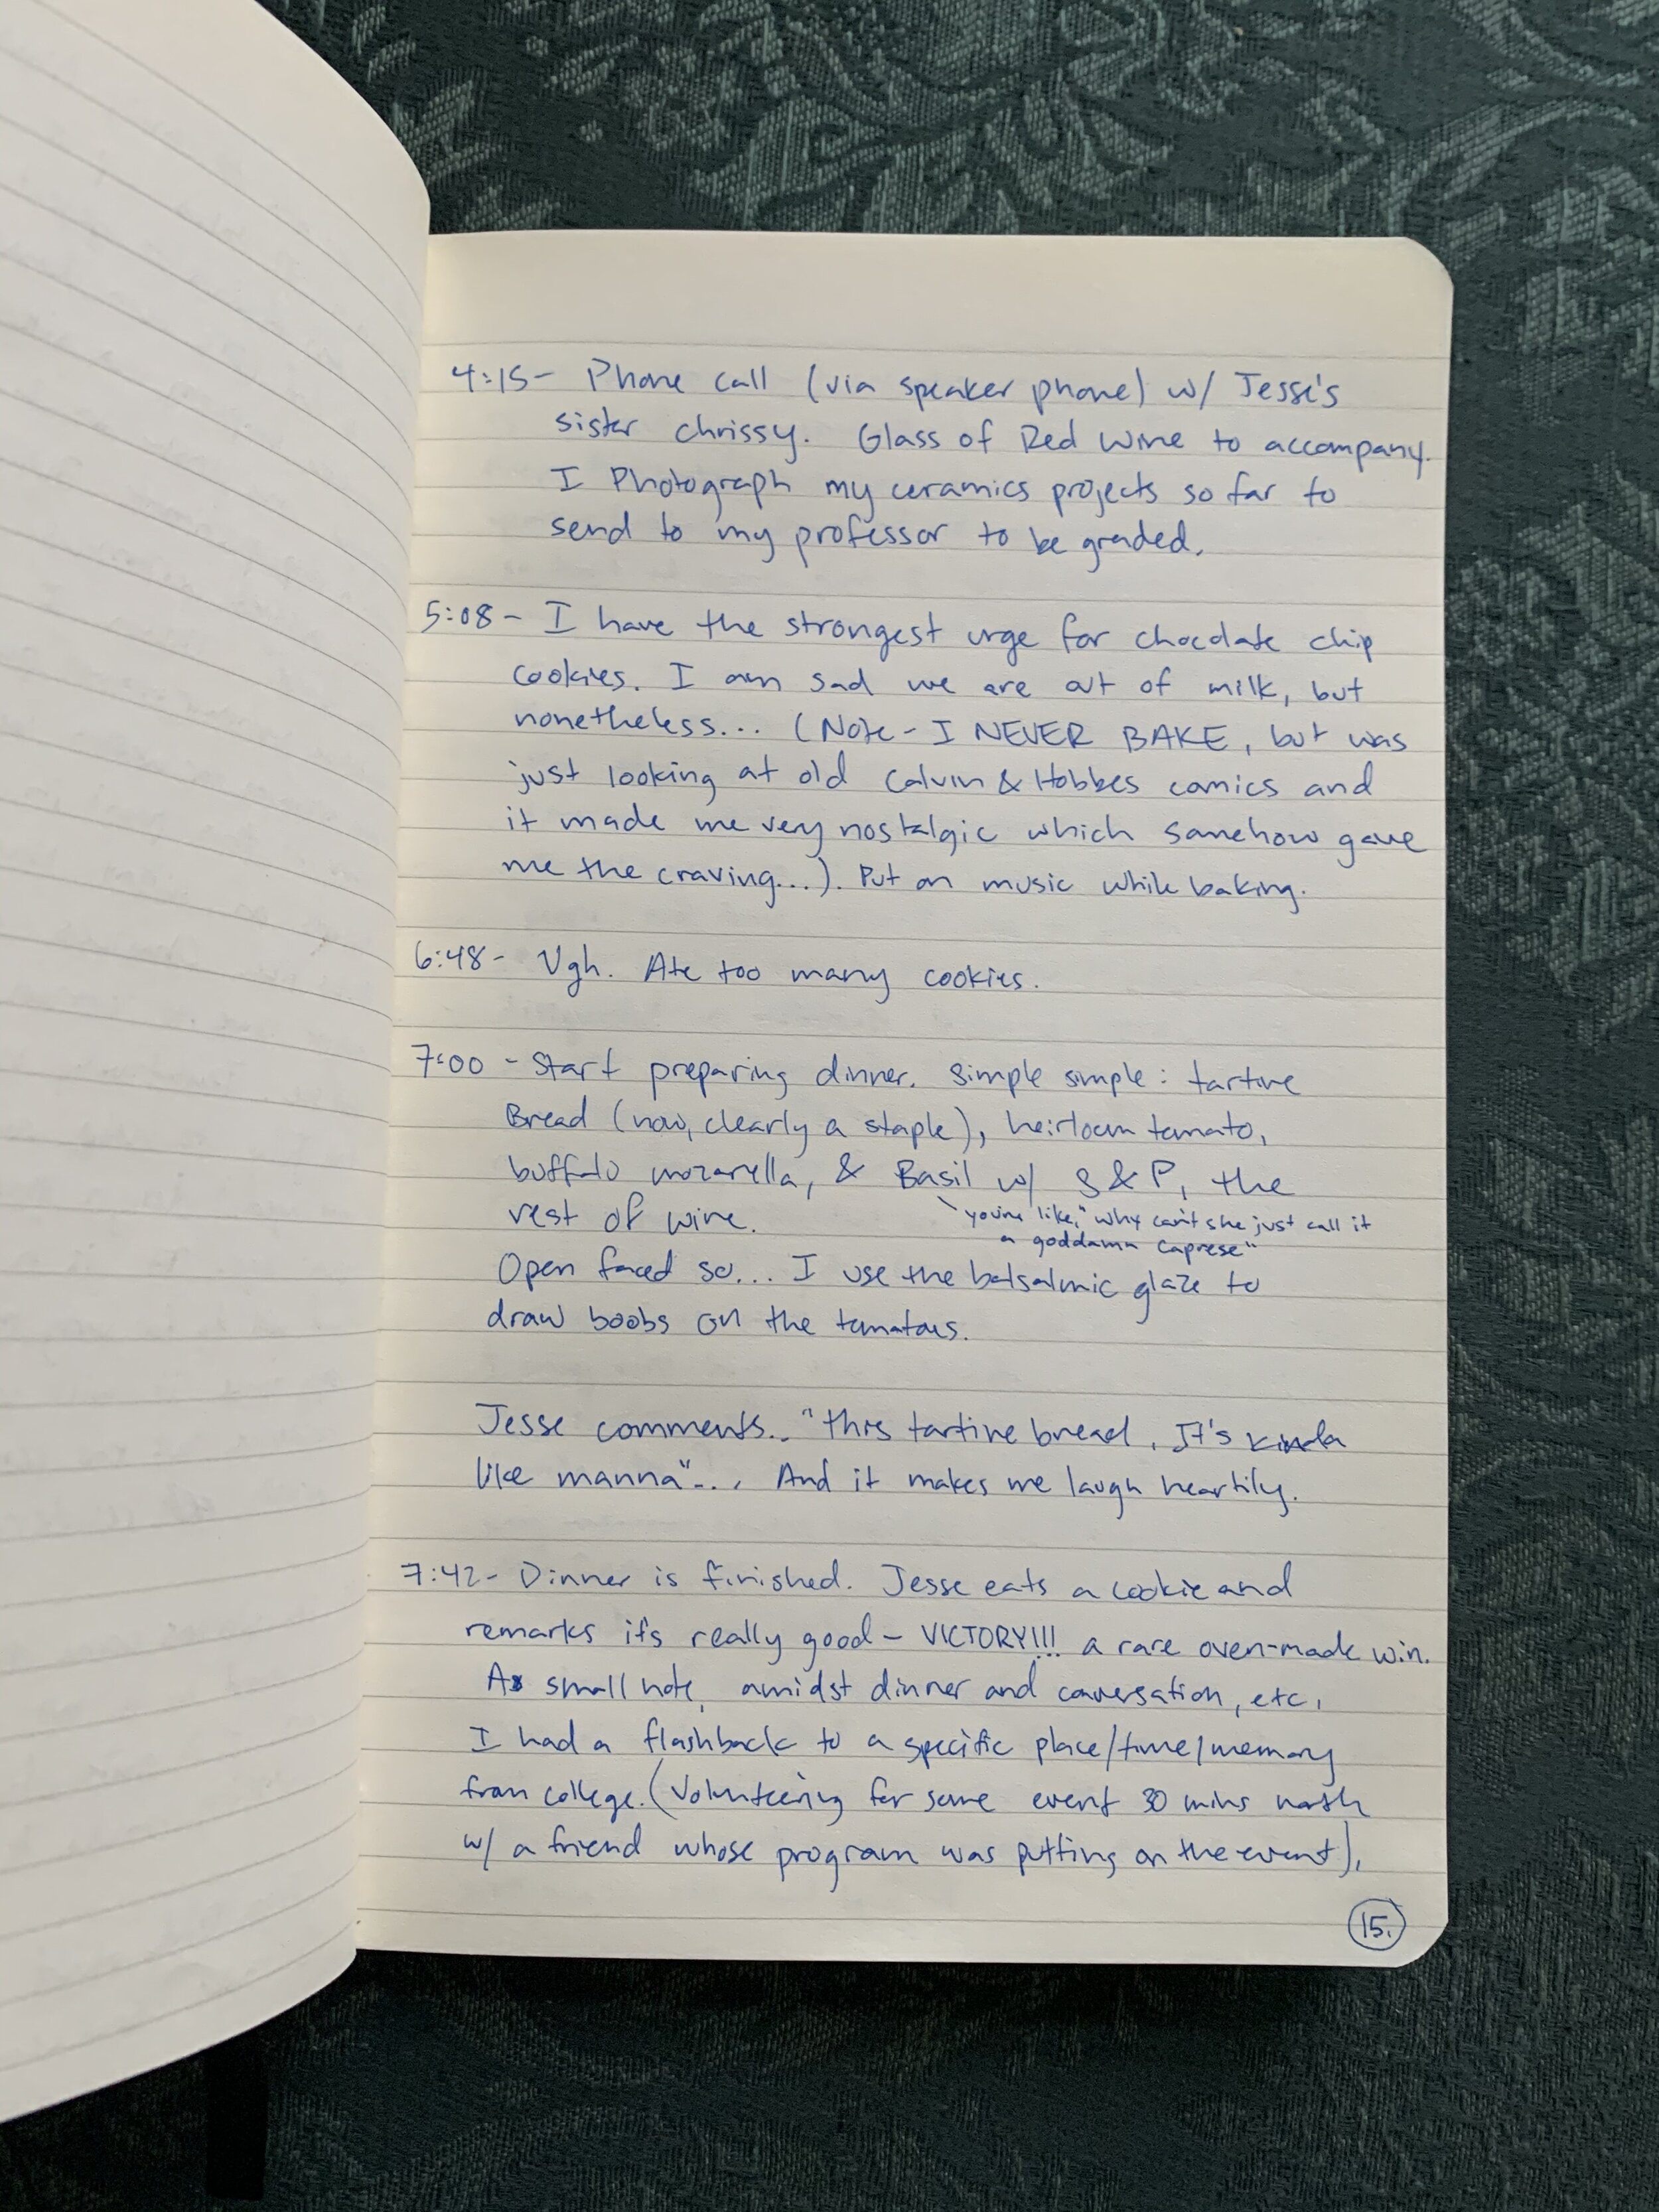 4:15- Phone call (via speaker phone) w/ Jesse's
sister chrissy. Glass of Red Wine to accompany.
I Photograph my ceramics projects so far to
send to my professor to be graded.
5:08- I have the strongest urge for chocolate chip
cookies. I am sad we are out of milk, but
nonetheless... (Note- I NEVER BAKE, but was
just looking at old Calvin & Hobbes comics and
it made me very nostalgic which somehow gave
me the craving...). Put on music while baking.
6:48- Ugh. Ate too many cookies.
7:00 - Start preparing dinner. Simple simple: tartine
Bread (now, clearly a staple), heirloom tomato,
buffalo mozarella, & Basil w/ S&P, the
rest of wine.
"you're like," why can't she just call it
a goddamn caprese"
Open faced so... I use the balsalmic glaze to
draw boobs on the tomatoes.
Jesse comments.. "this tartine bread, It's kinda
like manna"... And it makes me laugh heartily.
7:42- Dinner is finished. Jesse eats a cookie and
remarks it's really good - VICTORY!!! a rare oven-made win.
As small note, amidst dinner and conversation, etc,
I had a flashback to a specific place/time/memory
from college. (Volunteering for some event 30 mins north
w/ a friend whose program was putting on the event),
15.